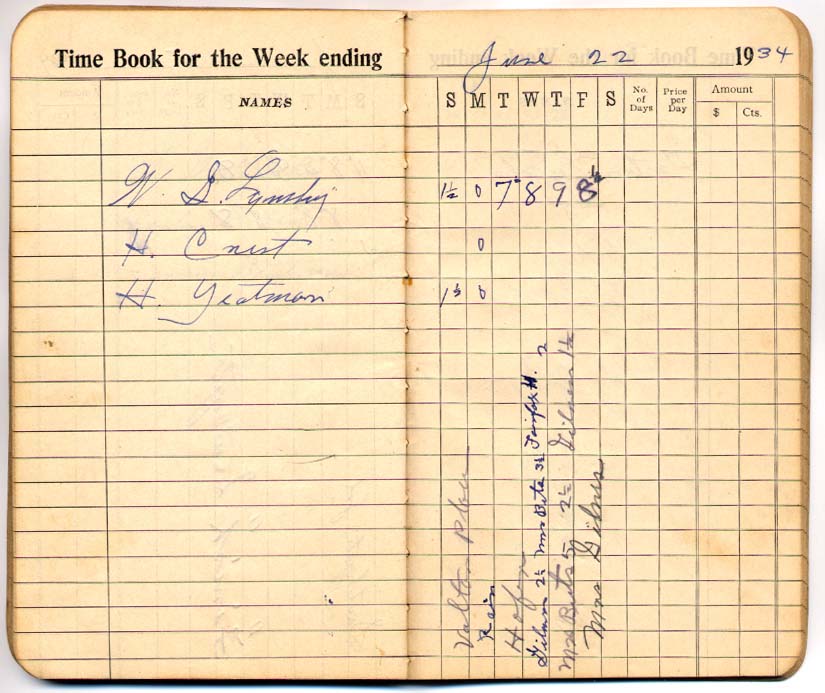 Time Book for the Week ending June 22 1934
NAMES S M T W T F S No. of Days Price per Day Amount $ Cts.
W. G. 1½ 0 7 8 9 8½
H. 0
H. Yeatman 1½ 0
Valton
Rain
Hofer
Gilman 2½ Mrs Bete 3½ Fairfax H. 2
Mrs Bets 5 2½ Gilman 1½
Mrs Gilman